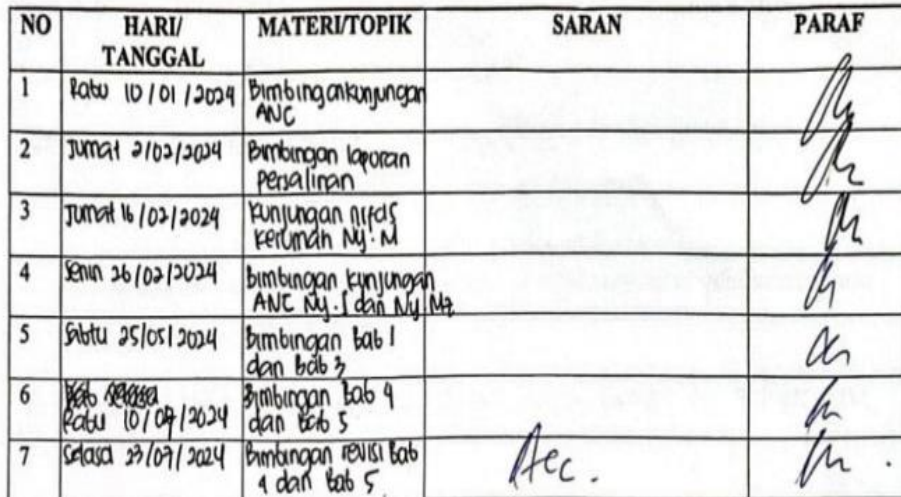 NO HARI/ MATERI/TOPIK SARAN PARAF
TANGGAL
1 Rabu 10/01/2024 Bimbingan kunjungan
ANC
2 Jumat 2/02/2024 Bimbingan laporan
persalinan
3 Jumat 16/02/2024 Kunjungan nifas
kerumah Ny. M
4 Senin 26/02/2024 Bimbingan kunjungan
ANC Ny. S dan Ny. Mz
5 Sabtu 25/05/2024 Bimbingan Bab 1
dan Bab 3
6 Bimbingan Bab 4
Rabu 10/07/2024 dan Bab 5
7 Selasa 23/07/2024 Bimbingan revisi Bab Acc.
4 dan Bab 5